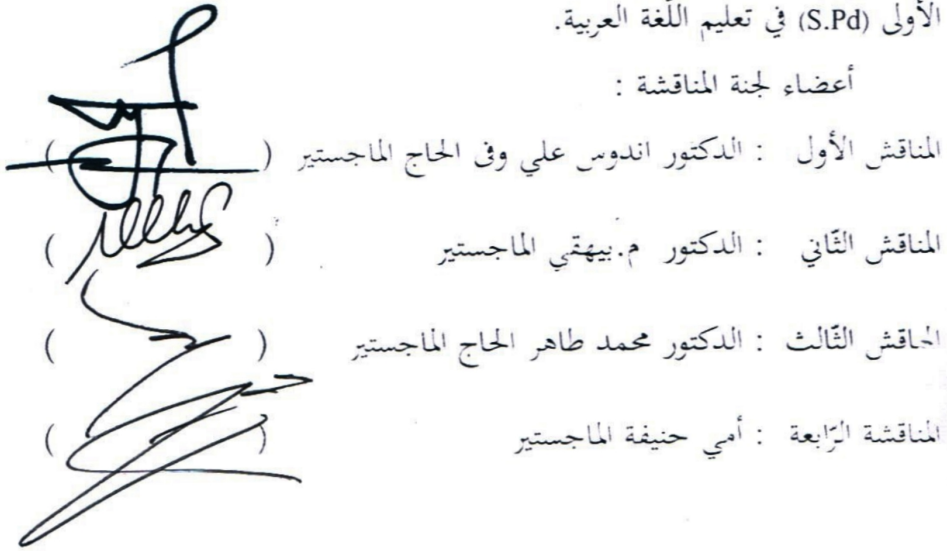 الأولى (S.Pd) في تعليم اللّغة العربية.
أعضاء لجنة المناقشة :
المناقش الأول : الدكتور اندوس علي وفى الحاج الماجستير ( )
المناقش الثّاني : الدكتور م.بيهقي الماجستير ( )
المناقش الثّالث : الدكتور محمد طاهر الحاج الماجستير ( )
المناقشة الرّابعة : أمي حنيفة الماجستير ( )